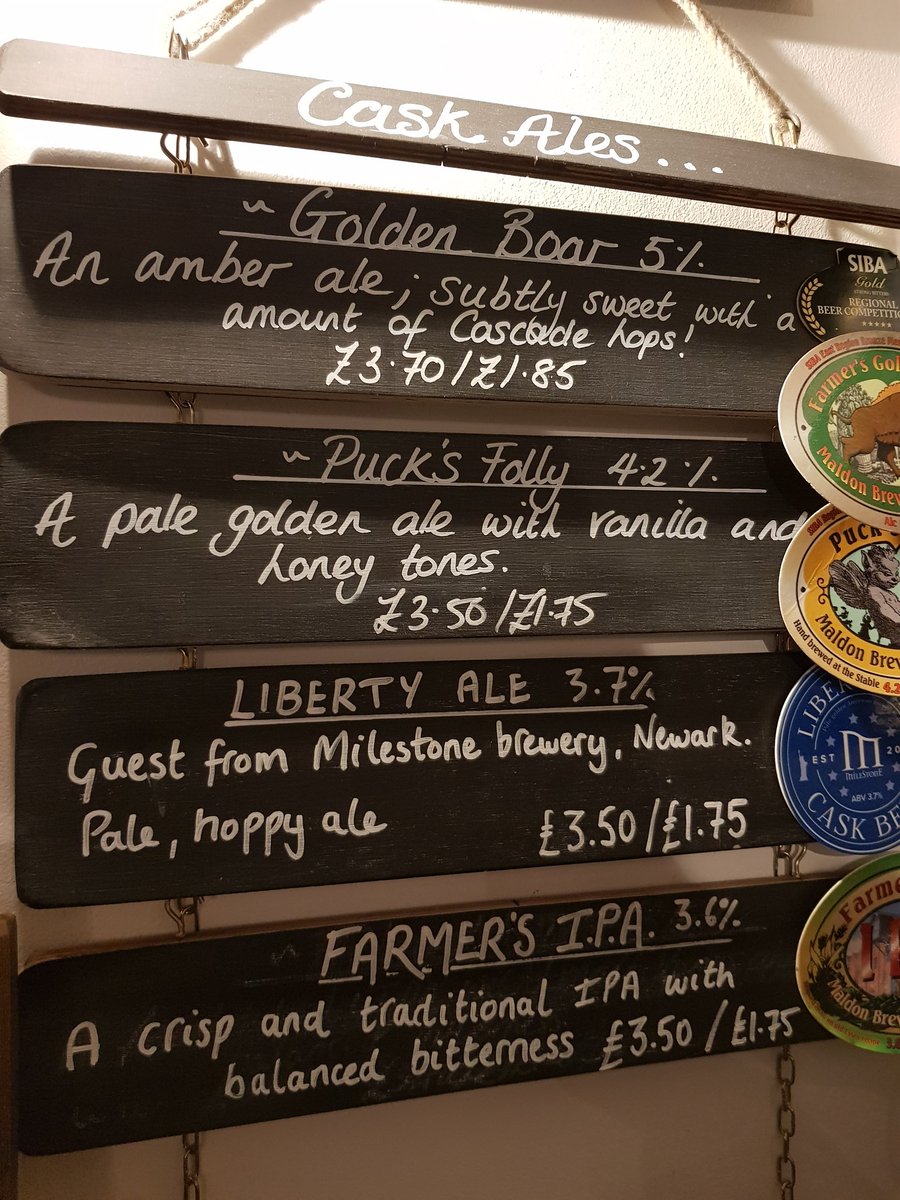 Cask Ales...
~ Golden Boar 5%
An amber ale; subtly sweet with a
amount of Cascade hops!
£3.70/£1.85
SIBA
Gold
STRONG BITTERS
REGIONAL
BEER COMPETITION
SIBA East Region
Farmer's Gol
Maldon Brew
Alc
~ Puck's Folly 4.2%
A pale golden ale with vanilla and
honey tones.
£3.50/£1.75
Puck
Maldon Brew
Hand brewed at the Stable 4.2
LIBERTY ALE 3.7%
Guest from Milestone brewery, Newark.
Pale, hoppy ale £3.50/£1.75
LIBER
EST 20
M
MILESTONE
ABV 3.7%
CASK BE
~ FARMER'S I.P.A. 3.6%
A crisp and traditional IPA with
balanced bitterness £3.50/£1.75
Farme
Maldon Brew